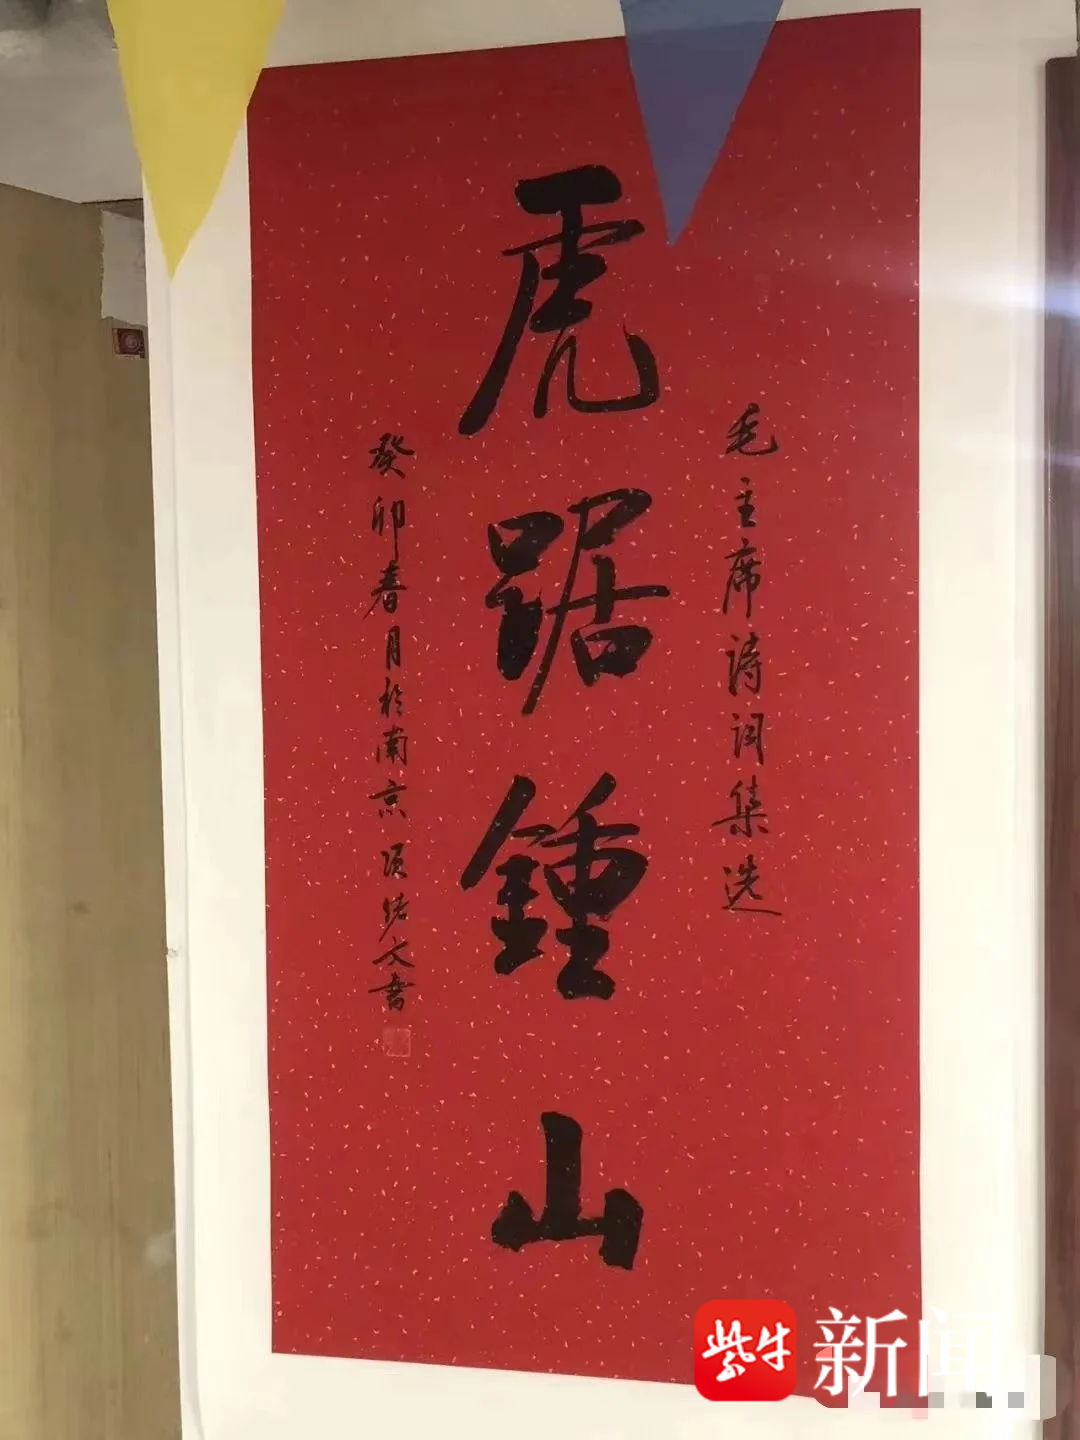 毛主席诗词集选
虎踞鍾山
癸卯春月於南京
书
紫牛新闻